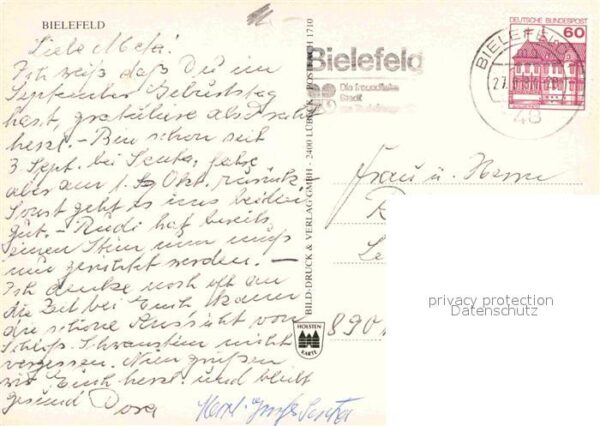 BIELEFELD
Liebe Meta!
Ich weiß daß Du im
September Geburtstag
hast, gratuliere also
herzl. – Bin schon seit
3 Sept. bei Senta, fahre
aber am 1. Okt. zurück
Sonst geht es uns beiden
gut. – Rudi hat bereits
einen
nur werden. –
Ich denke noch oft an
die Zeit bei Euch
die schöne Aussicht von
Schloß Schwanstein nicht
vergessen. Nun grüßen
wir Euch herzl. und bleibt
gesund Dora
Herzl. Grüße Senta
BILD-DRUCK & VERLAG GMBH - 2400 LÜBECK - POSTFACH 1710
HOLSTEN
KARTE
Bielefeld
Die freundliche
Stadt
BIELEFELD
48
DEUTSCHE BUNDESPOST
60
Frau u. Herrn
890
privacy protection
Datenschutz